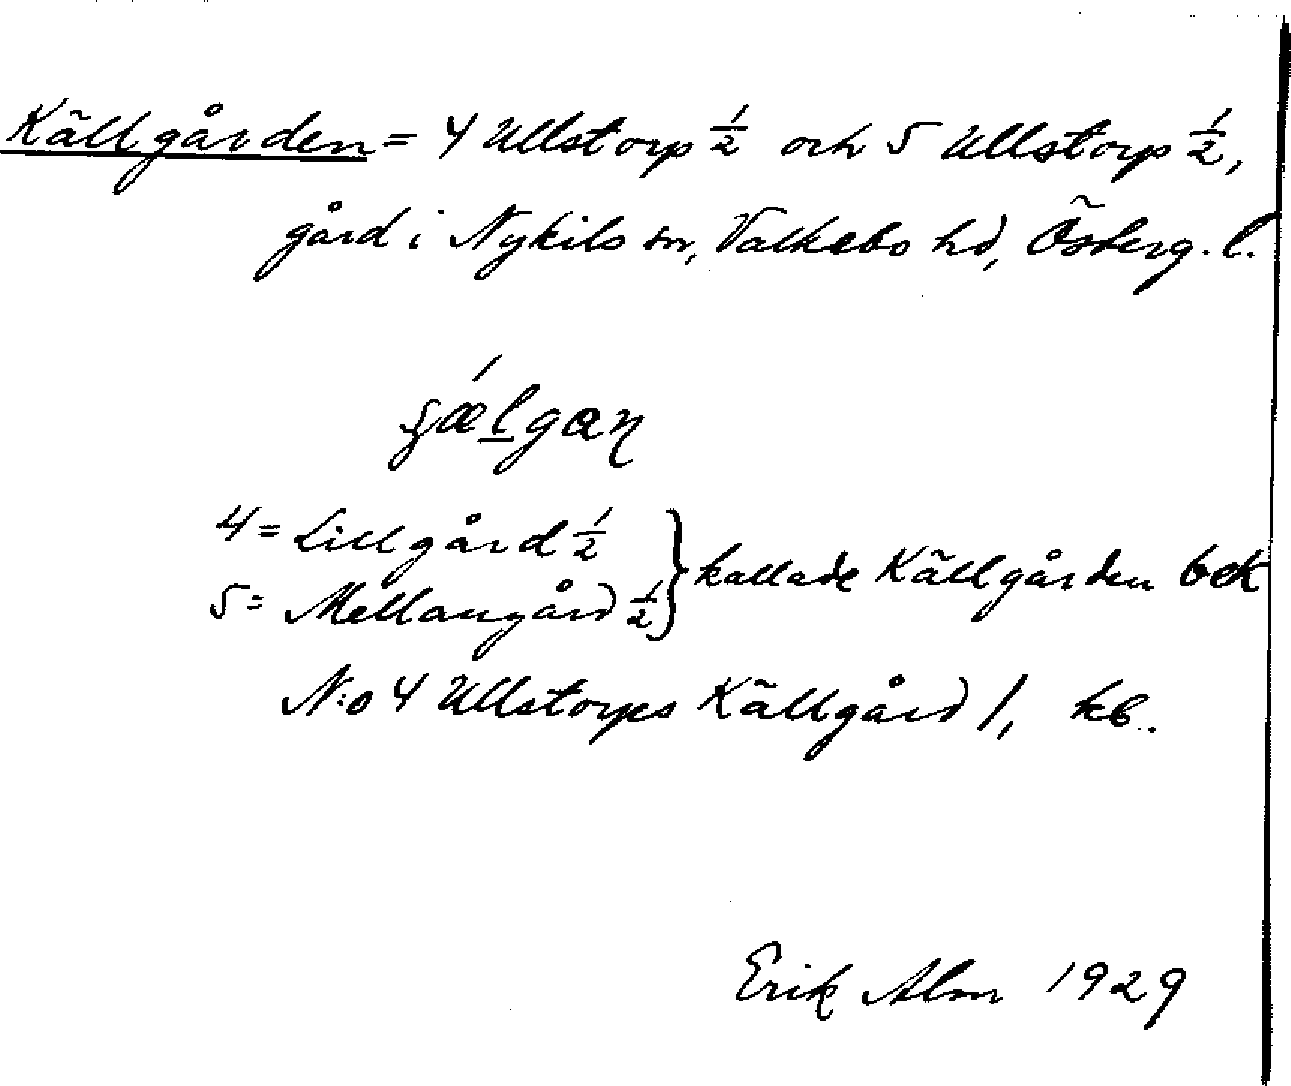 Källgården = 4 Ullstorp ½ och 5 Ullstorp ½,
gård i Nykils sn, Valkebo hd, Österg. l.
4 = Lillgård ½ } kallade Källgården bek
5 = Mellangård ½
N:o 4 Ullstorps Källgård /, kb.
Erik Alm 1929